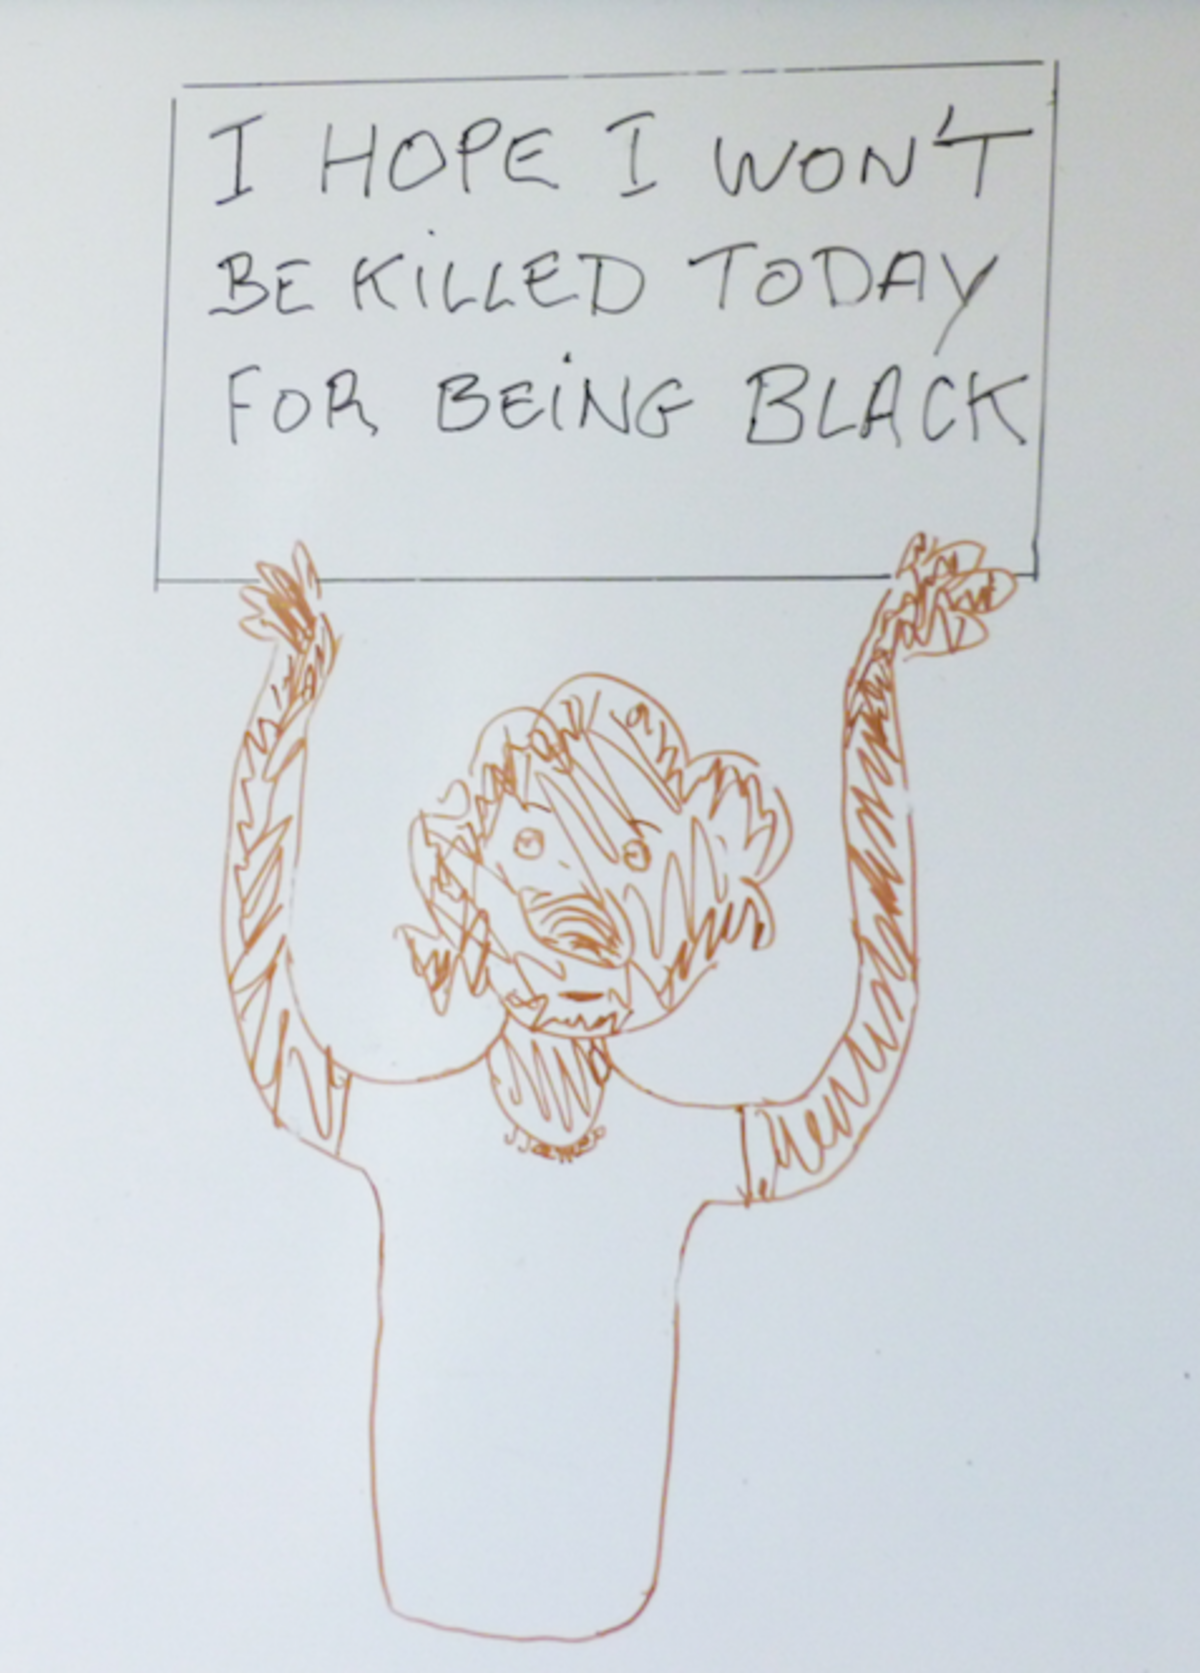 I HOPE I WON'T
BE KiLLED TODAY
FOR BEiNG BLACK